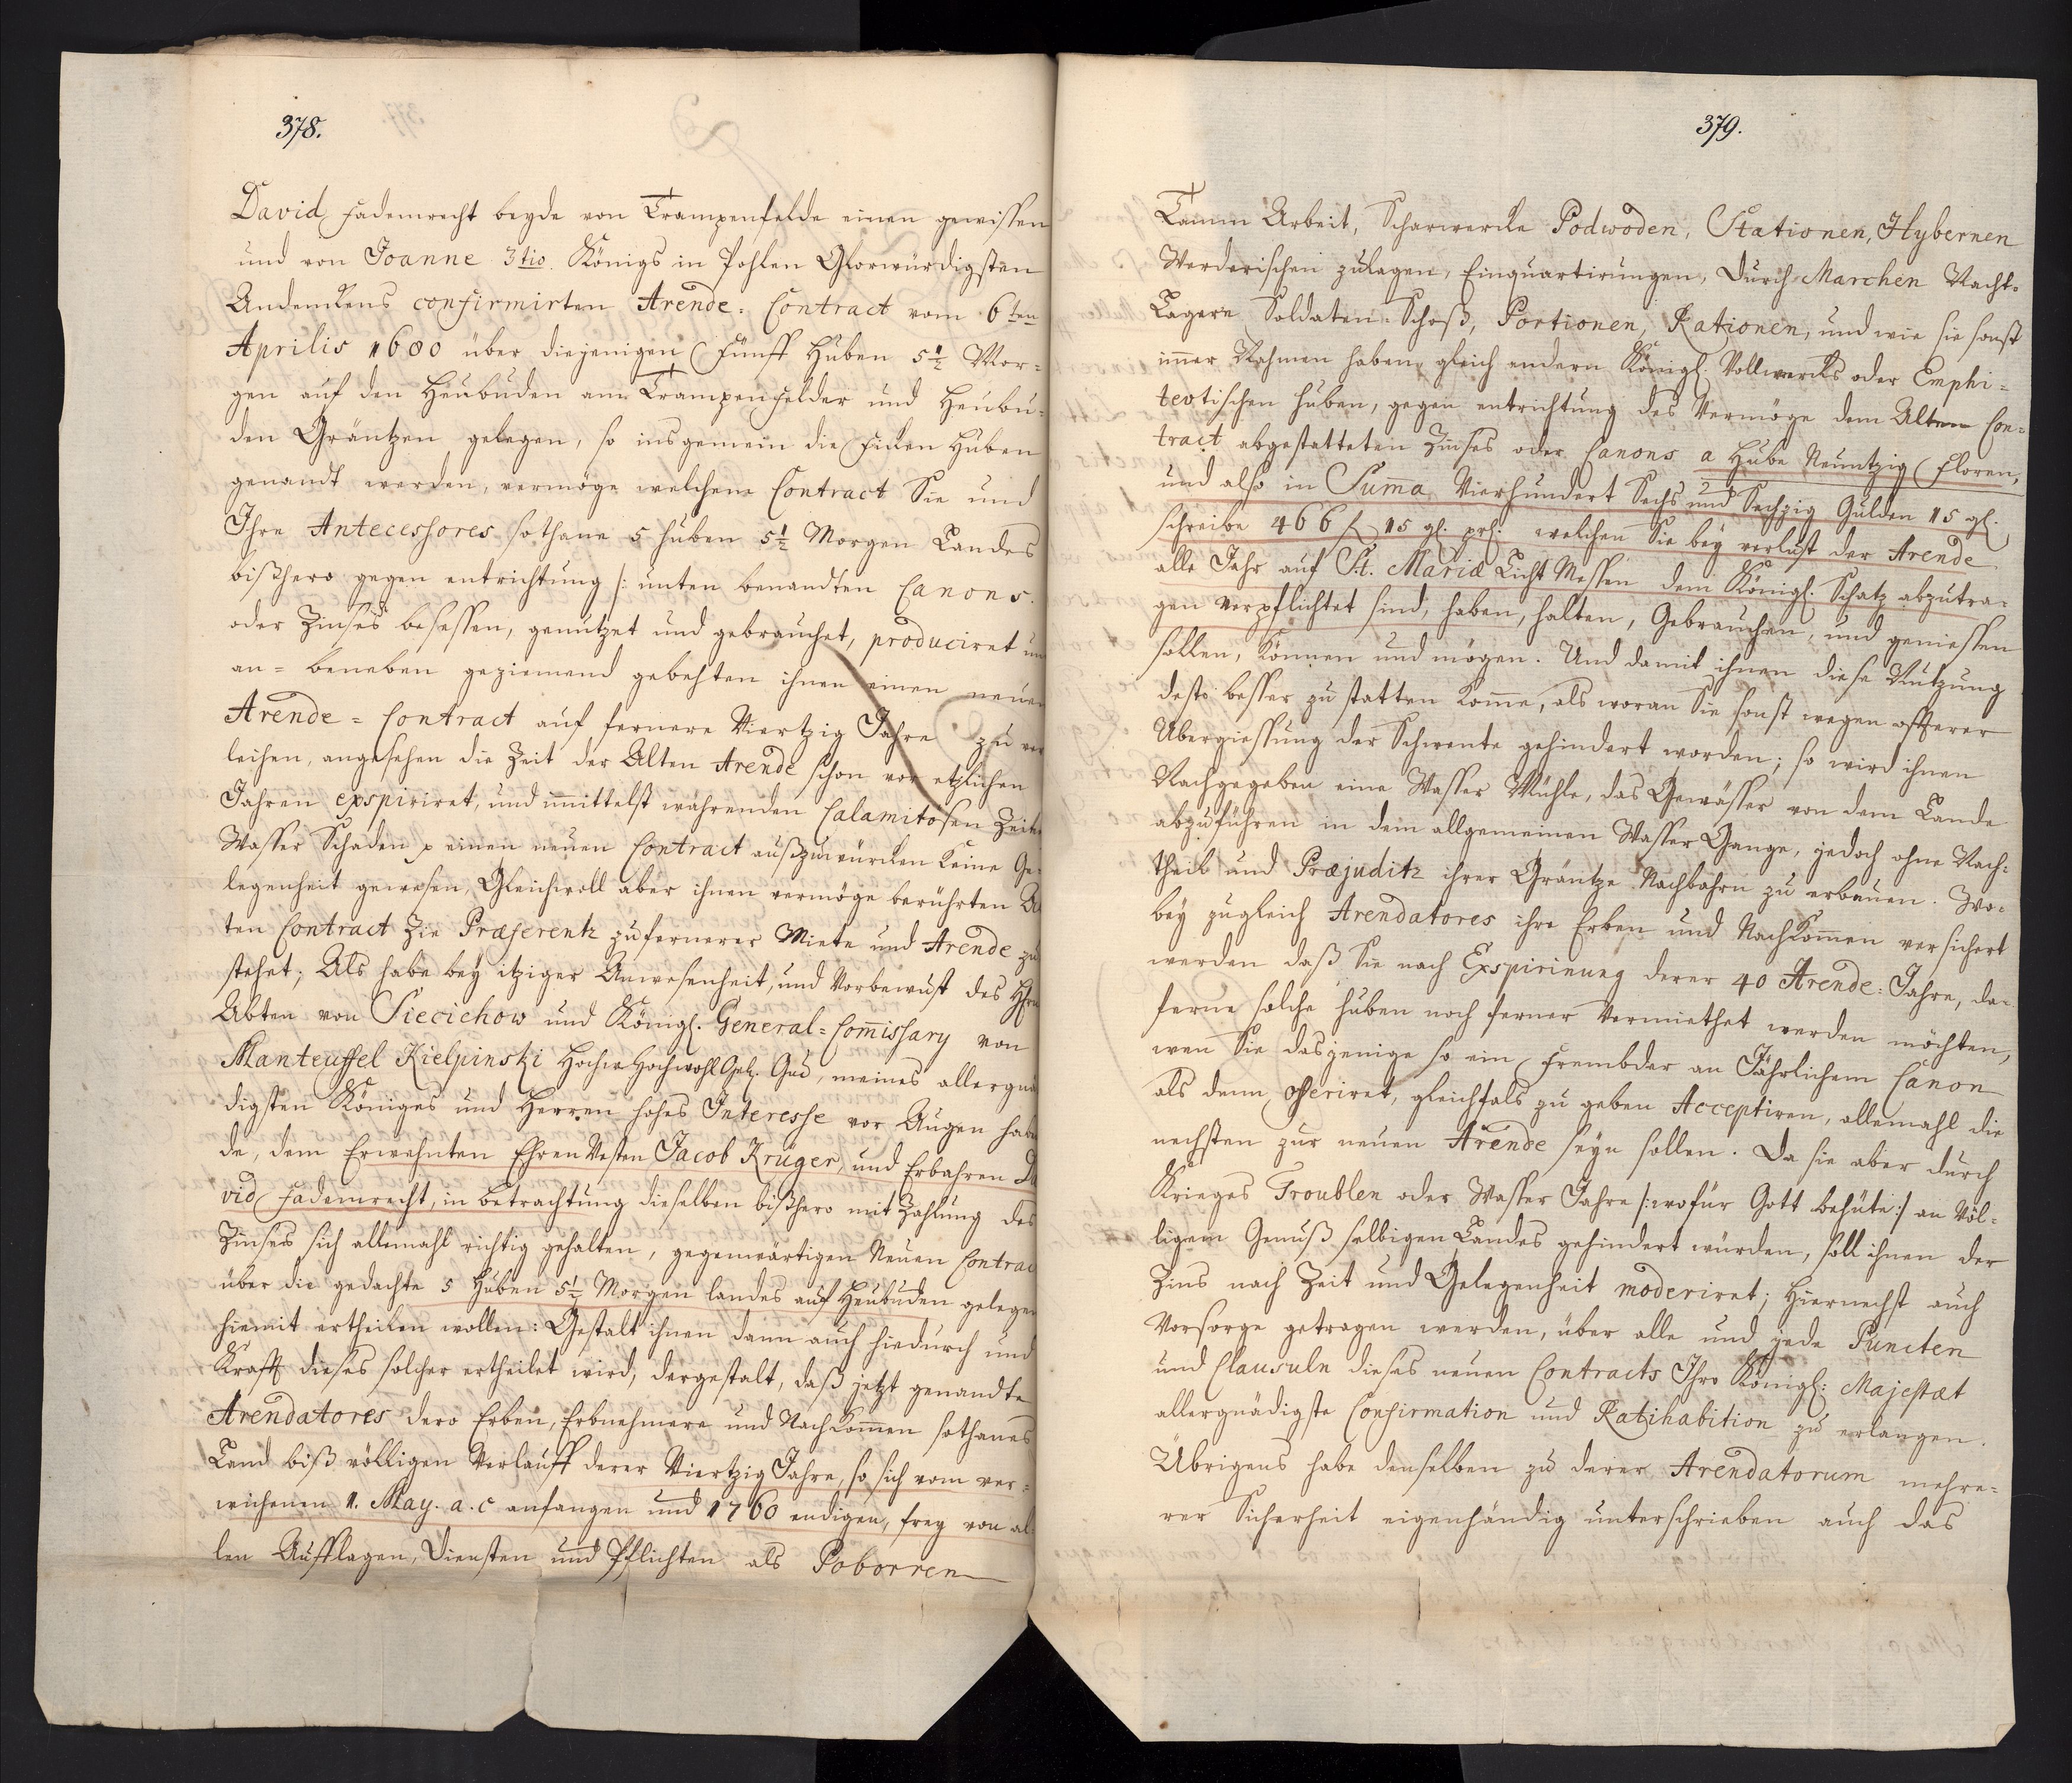 378.
David Fademrecht beyde von Trampenfelde einen gewissen
und von Joanne 3tio. Königs in Pohlen Glorwürdigsten
Andenckens confirmirten Arende-Contract vom 6ten
Aprilis 1680 über diejenigen Fünff Huben 5½ Mor-
gen auf den Heubuden am Trampenfelder und Heubu-
den Gräntzen gelegen, so insgemein die Ficken Huben
genandt werden, vermöge welchem Contract Sie und
Ihre Antecessores sothane 5 Huben 5½ Morgen Landes
bißhero gegen entrichtung /: unten benandten Canons.
oder Zinses besessen, genutzet und gebrauchet, produciret un
an- beneben geziemend gebehten ihnen einen neuen
Arende-Contract auf fernere Viertzig Jahre zu ver
leihen, angesehen die Zeit der Alten Arende schon vor etzlichen
Jahren exspiriret, und immittelst währenden Calamitosen Zeite
Wasser Schaden p einen neuen Contract außzuwürcken keine Ge-
legenheit gewesen, Gleichwoll aber ihnen vermöge berührten Al
ten Contract Die Præferentz zu fernerer Miete und Arende zu
stehet; Als habe bey itziger Anwesenheit, und Vorbewust des Hhrn
Abten von Sieciechow und Königl. General-Commissary von
Manteuffel Kielpinski Hochw. HochwohlGeb. Gnd, meines allergnä
digsten Königes und Herren hohes Interesse vor Augen hab
de, dem Erwehnten EhrenVesten Jacob Krüger, und Erbahren Da
vid Fademrecht, in betrachtung dieselben bißhero mit Zahlung des
Zinses sich allemahl richtig gehalten, gegenwärtigen Neuen Contrac
über die gedachte 5 Huben 5½ Morgen landes auf Heubuden gelegen
hiemit ertheilen wollen: Gestalt ihnen dann auch hiedurch und
Krafft dieses solcher ertheilet wird, dergestalt, daß jetzt genandte
Arendatores dero Erben, Erbnehmere und Nachkommen sothanes
Land biß völligen Verlauff derer Viertzig Jahre, so sich vom ver-
wichenen 1. May. a. c anfangen und 1760 endigen, frey von al
len Aufflagen, Diensten und Pflichten als Poborren
379.
Tamm Arbeit, Scharwercke Podwoden, Stationen, Hybernen
Werderischen zulagen, Einquartirungen, Durch Marchen Nacht-
Lagern Soldaten-Schoß, Portionen, Rationen, und wie sie sonst
immer Nahmen haben, gleich andern Königl. Vollwercks oder Emphi-
tevtischen Huben, gegen entrichtung des Vermöge dem Alten Con-
tract abgestatteten Zinses oder Canons a Hube Neuntzig Floren,
und also in Suma Vierhundert Sechs und Sechzig Gulden 15 gl.
schreibe 466 f 15 gl. prl. welchen Sie bey verlust der Arende
alle Jahr auf St. Mariæ Licht Messen dem Königl. Schatz abzutra-
gen verpflichtet sind, haben, halten, Gebrauchen, und geniessen
sollen, Können und mögen. Und damit ihnen diese Nutzung
desto besser zu statten komme, als woran Sie sonst wegen öffterer
Übergiessung der Schwente gehindert worden; so wird ihnen
Nachgegeben eine Wasser Mühle, das Gewässer von dem Lande
abzuführen in dem allgemeinen Wasser Gange, jedoch ohne Nach-
theil und Præjuditz ihrer Gräntze Nachbahrn zu erbauen. Wo-
bey zugleich Arendatores ihre Erben und Nachkommen versichert
werden daß Sie nach Exspirirung derer 40 Arende-Jahre, da-
ferne solche Huben noch ferner Vermiethet werden möchten,
wen Sie dasjenige so ein Frembder an Jährlichem Canon
als denn offeriret, gleichfals zu geben Acceptiren, allemahl die
nechsten zur neuen Arende seyn sollen. Da sie aber durch
Krieges Troublen oder Wasser Jahre /: wofür Gott behüte :/ an Völ-
ligem Genuß selbigen Landes gehindert würden, soll ihnen der
Zins nach Zeit und Gelegenheit moderiret; Hiernechst auch
Vorsorge getragen werden, über alle und jede Puncten
und Clausuln dieses neuen Contracts Ihro Königl: Majestæt
allergnädigste Confirmation und Ratihabition zu erlangen.
Übrigens habe denselben zu derer Arendatorum mehre-
rer Sicherheit eigenhändig unterschrieben auch das